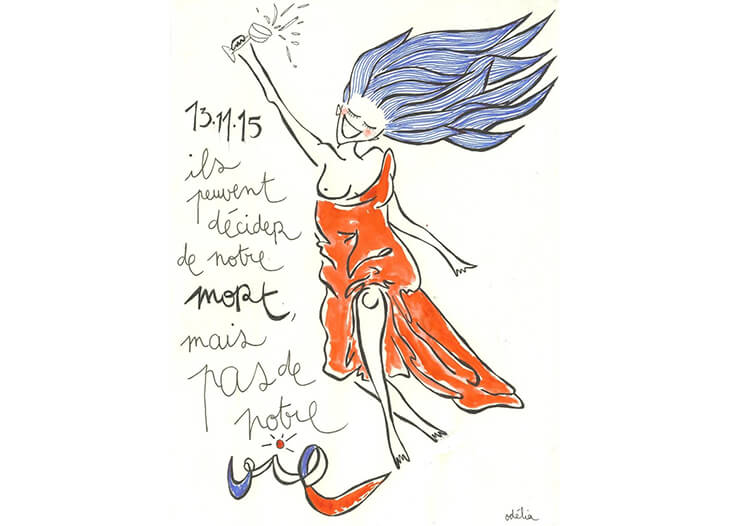 13.11.15
ils
peuvent
décider
de notre
mort,
mais
pas de
notre
vie
odélia